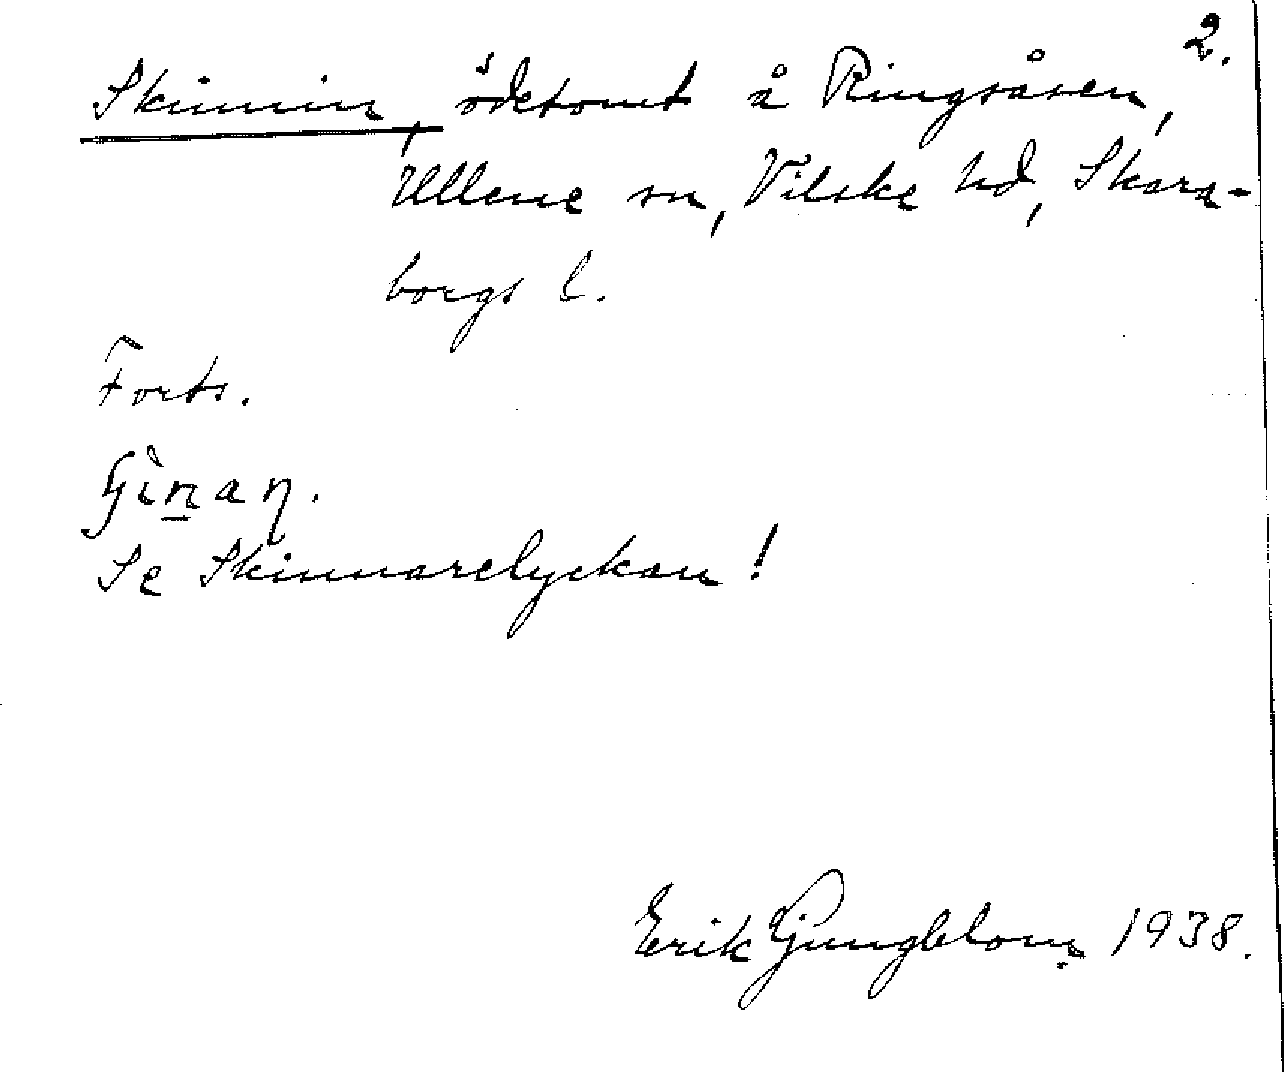 2.
Skinnin, ödetomt å Ringsåsen,
Ullene sn, Vilske hd, Skara-
borgs l.
Forts.
Se Skinnarelyckan!
Erik Ljungblom 1938.